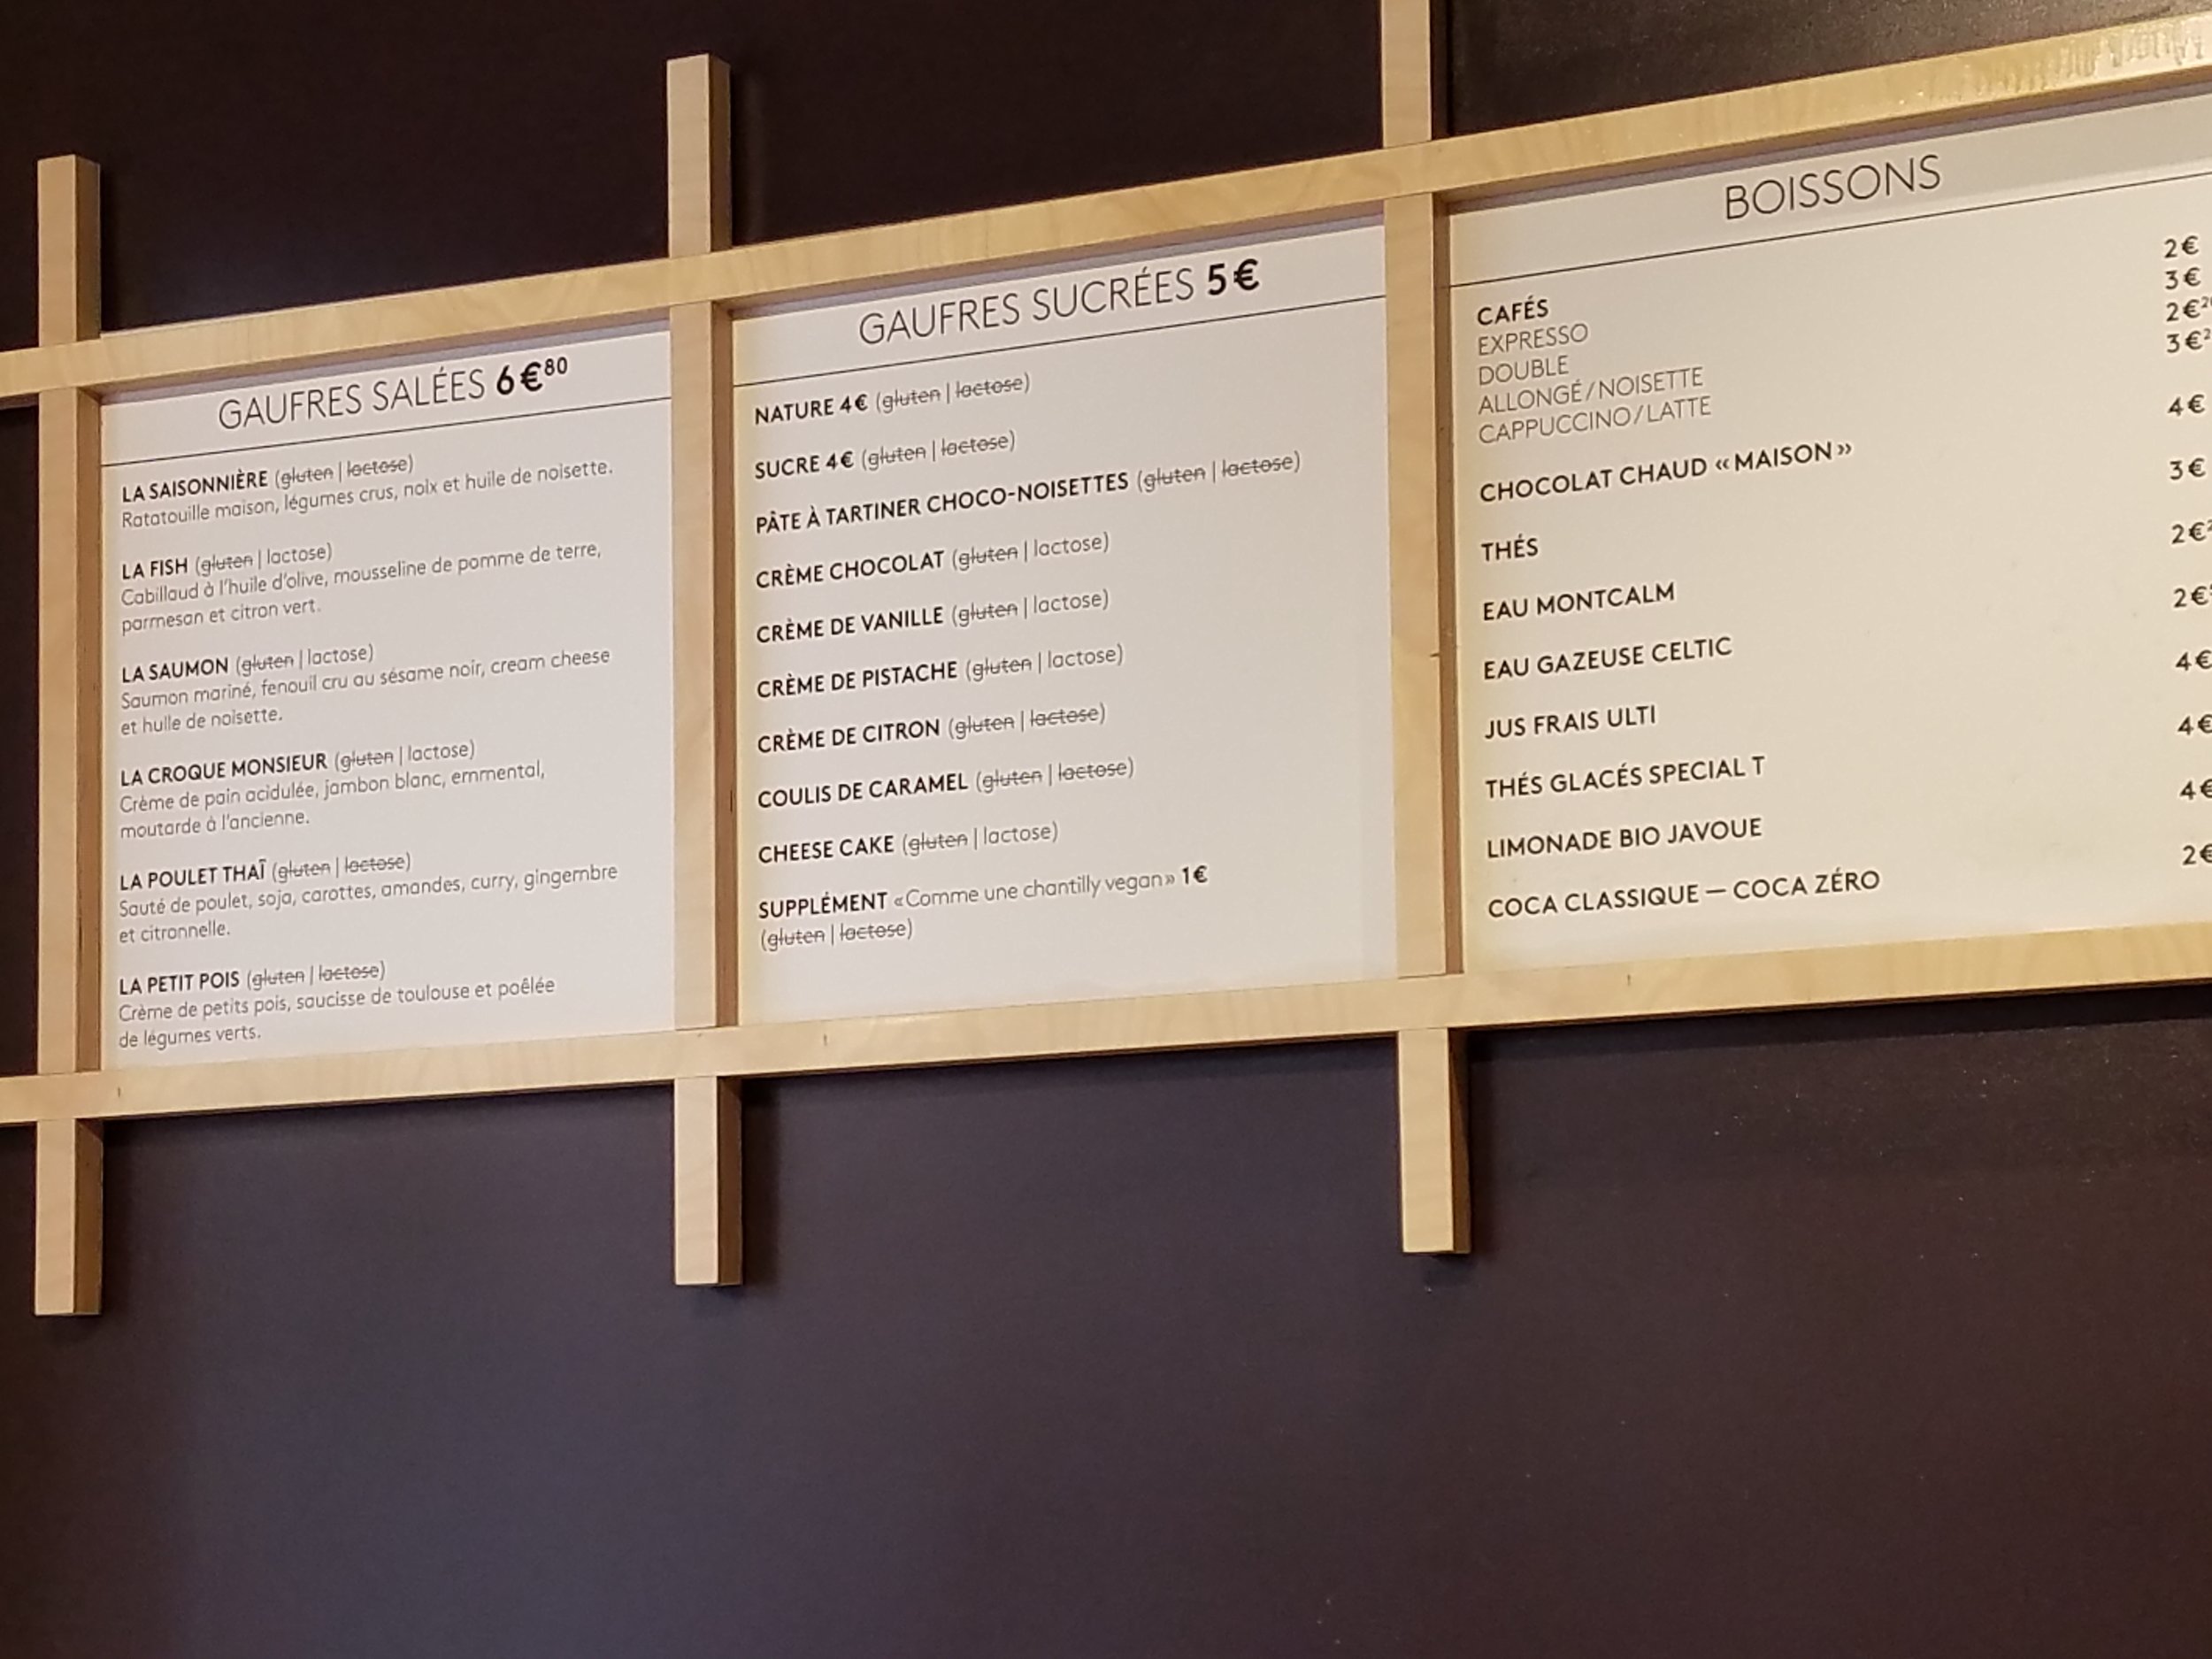 GAUFRES SALÉES 6€80
LA SAISONNIÈRE (gluten | lactose)
Ratatouille maison, légumes crus, noix et huile de noisette.
LA FISH (gluten | lactose)
Cabillaud à l'huile d'olive, mousseline de pomme de terre,
parmesan et citron vert.
LA SAUMON (gluten | lactose)
Saumon mariné, fenouil cru au sésame noir, cream cheese
et huile de noisette.
LA CROQUE MONSIEUR (gluten | lactose)
Crème de pain acidulée, jambon blanc, emmental,
moutarde à l'ancienne.
LA POULET THAÏ (gluten | lactose)
Sauté de poulet, soja, carottes, amandes, curry, gingembre
et citronnelle.
LA PETIT POIS (gluten | lactose)
Crème de petits pois, saucisse de toulouse et poêlée
de légumes verts.
GAUFRES SUCRÉES 5€
NATURE 4€ (gluten | lactose)
SUCRE 4€ (gluten | lactose)
PÂTE À TARTINER CHOCO-NOISETTES (gluten | lactose)
CRÈME CHOCOLAT (gluten | lactose)
CRÈME DE VANILLE (gluten | lactose)
CRÈME DE PISTACHE (gluten | lactose)
CRÈME DE CITRON (gluten | lactose)
COULIS DE CARAMEL (gluten | lactose)
CHEESE CAKE (gluten | lactose)
SUPPLÉMENT «Comme une chantilly vegan» 1€
(gluten | lactose)
BOISSONS
CAFÉS
EXPRESSO 2€
DOUBLE 3€
ALLONGÉ/NOISETTE 2€2
CAPPUCCINO/LATTE 3€2
CHOCOLAT CHAUD «MAISON» 4€
THÉS 3€
EAU MONTCALM 2€2
EAU GAZEUSE CELTIC 2€
JUS FRAIS ULTI 4€
THÉS GLACÉS SPECIAL T 4€
LIMONADE BIO JAVOUE 4€
COCA CLASSIQUE — COCA ZÉRO 2€